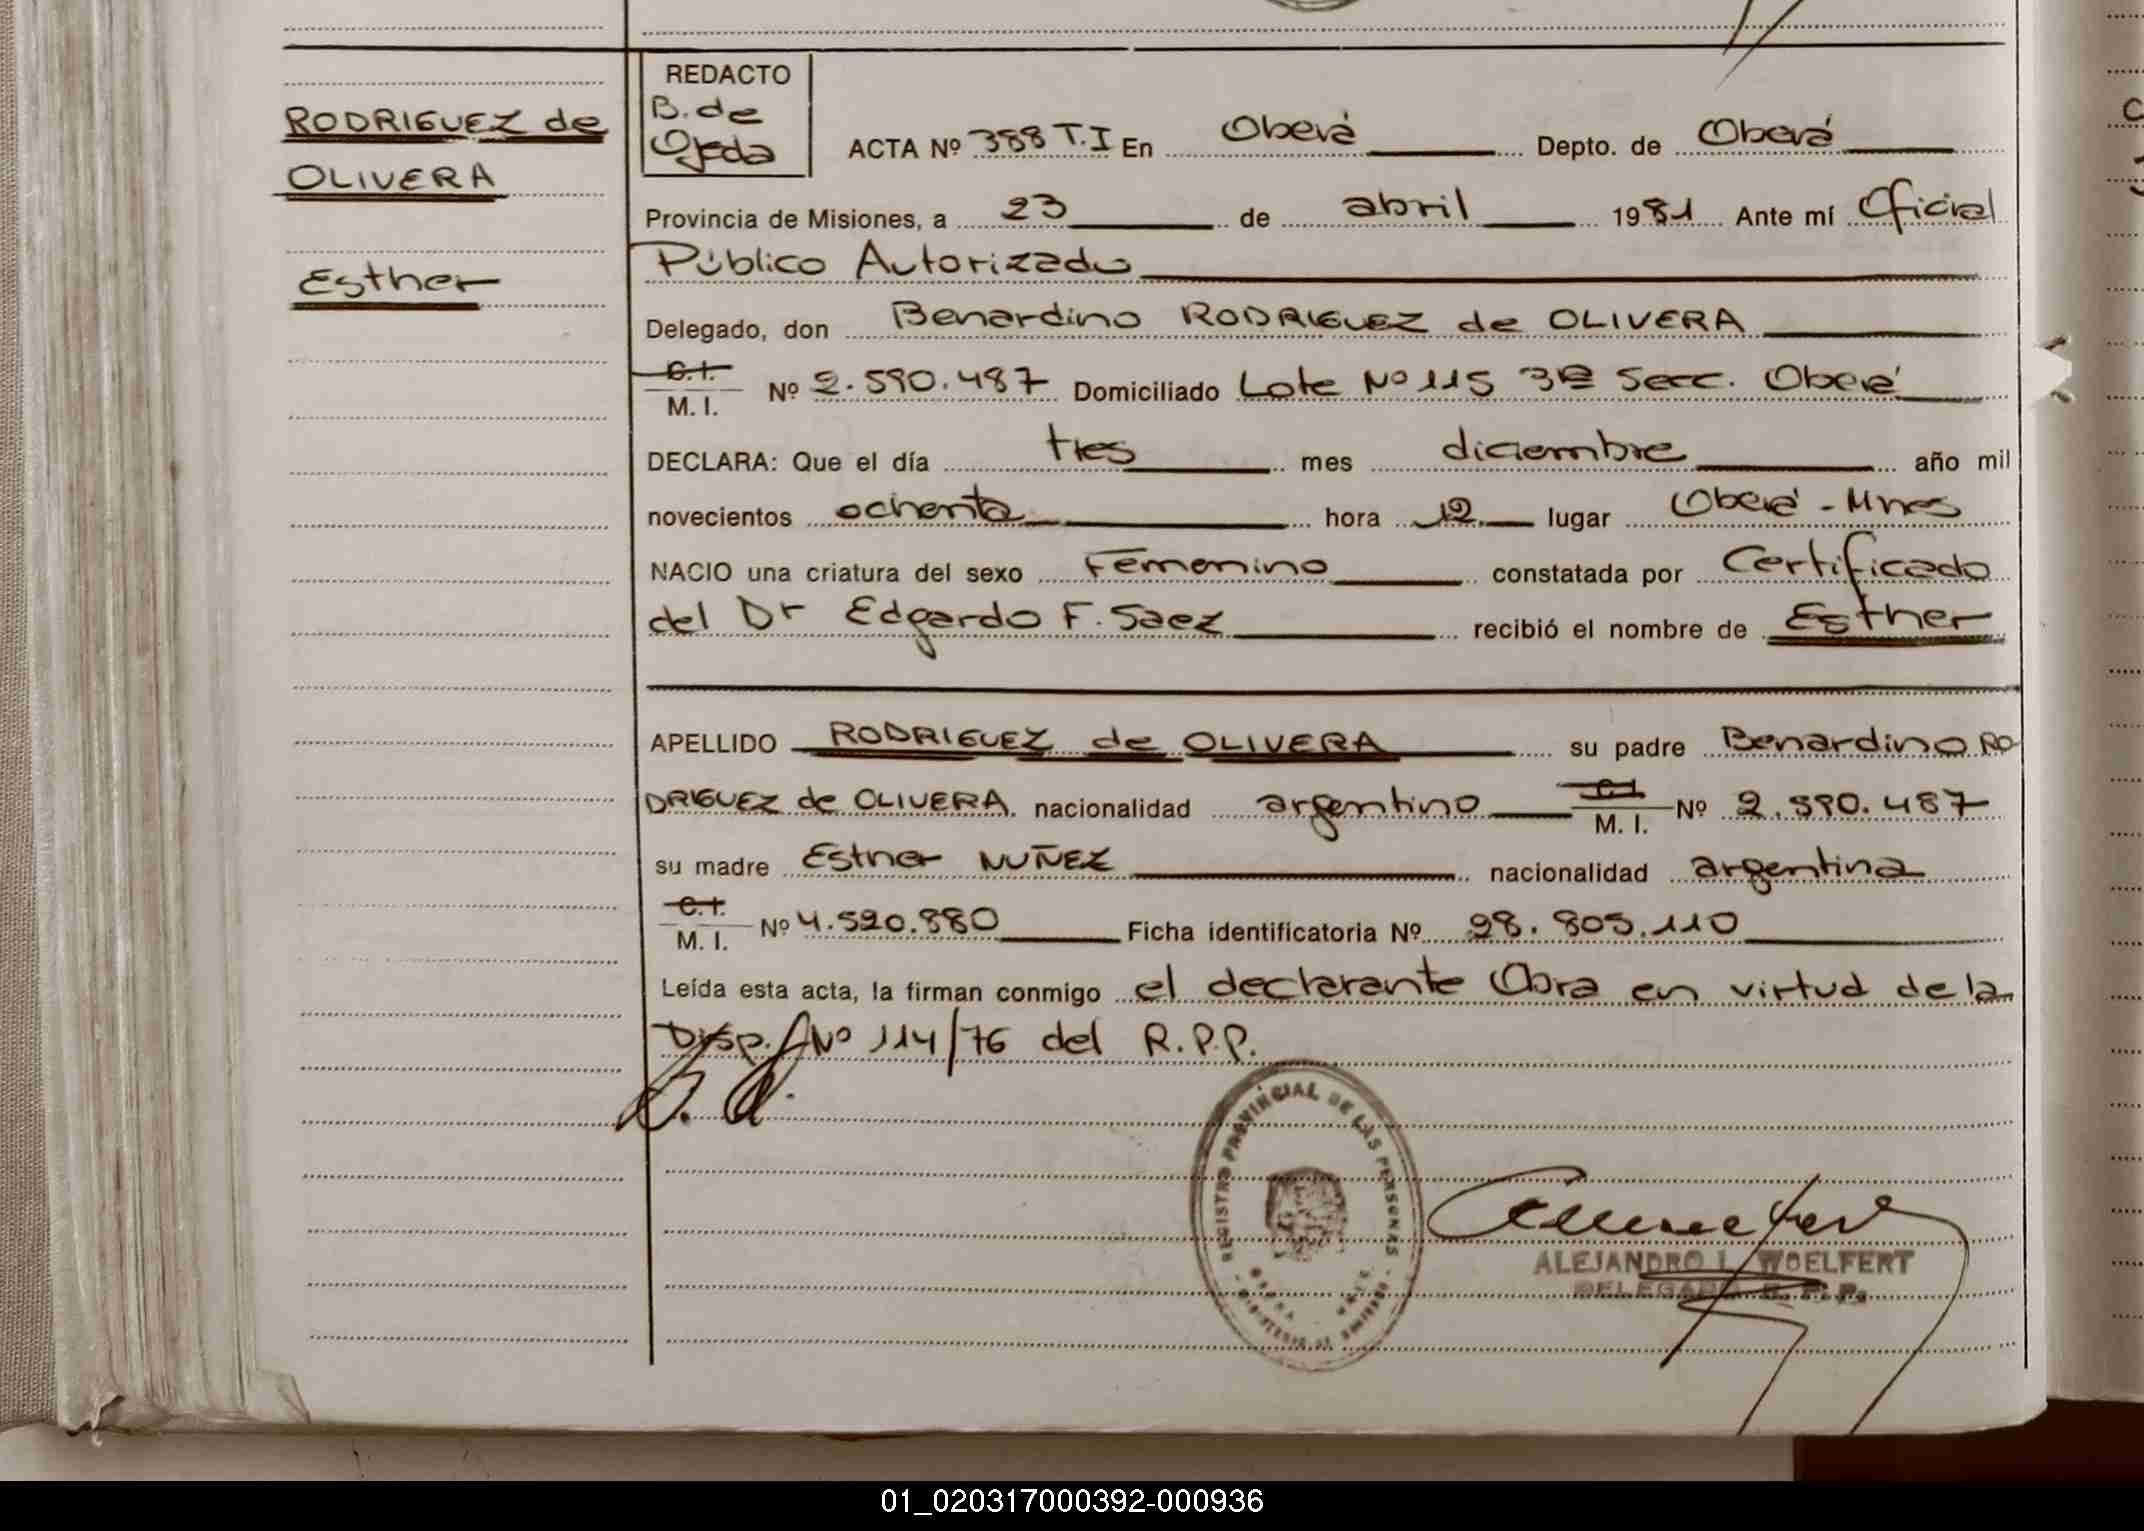 RODRIGUEZ de
OLIVERA
Esther
REDACTO
B. de
Ojeda
ACTA Nº 388 T.I En Oberá Depto. de Oberá
Provincia de Misiones, a 23 de abril 1981 Ante mí Oficial
Público Autorizado
Delegado, don Benardino RODRIGUEZ de OLIVERA
C.I.
M. I. Nº 2.590.487 Domiciliado Lote Nº 115 3ª Secc. Oberá
DECLARA: Que el día tres mes diciembre año mil
novecientos ochenta hora 12 lugar Oberá - Mnes
NACIO una criatura del sexo Femenino constatada por Certificado
del Dr Edgardo F. Saez recibió el nombre de Esther
APELLIDO RODRIGUEZ de OLIVERA su padre Benardino RO-
DRIGUEZ de OLIVERA. nacionalidad argentino C.I.
M. I. Nº 2.590.487
su madre Esther NUÑEZ nacionalidad argentina
C.I.
M. I. Nº 4.520.880 Ficha identificatoria Nº 28.805.110
Leída esta acta, la firman conmigo el declarante Obra en virtud de la
Disp. Nº 114/76 del R.P.P.
REGISTRO PROVINCIAL DE LAS PERSONAS
ALEJANDRO L. WOELFERT
DELEGADO R. P. P.
01_020317000392-000936